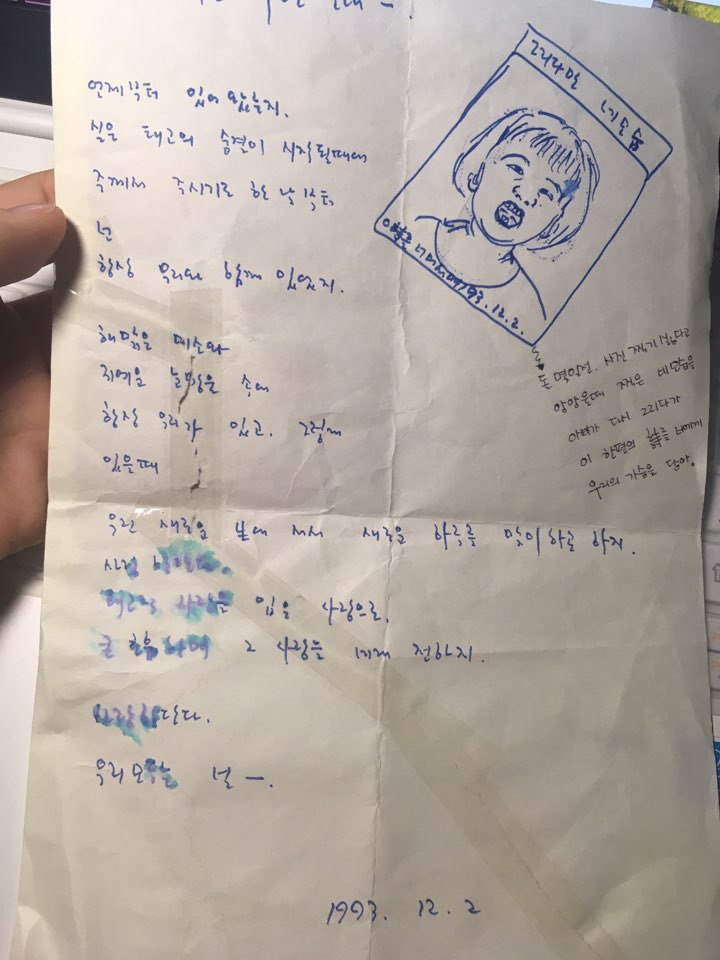 언제부터 있어 왔는지.
실은 태고의 숨결이 시작될때에
주께서 주시기로 한 날부터
넌
항상 우리와 함께 있었지.
해맑은 미소와
귀여운 눈망울 속에
항상 우리가 있고. 그렇게
있을때
우린 새로운 봄에 서서 새로운 하루를 맞이하로 하지.
입은 사랑으로.
그 사랑을 네게 전하지.
사랑한단다.
우리 모두는 널 ㅡ.
1993. 12. 2
그리라만 네모습
93. 12. 2.
돌 몇일전. 사진 찍기 싫다고
앙앙울때 찍은 네모습을
아빠가 다시 그리다가
이 한편의 을 너에게
우리의 가슴을 담아.